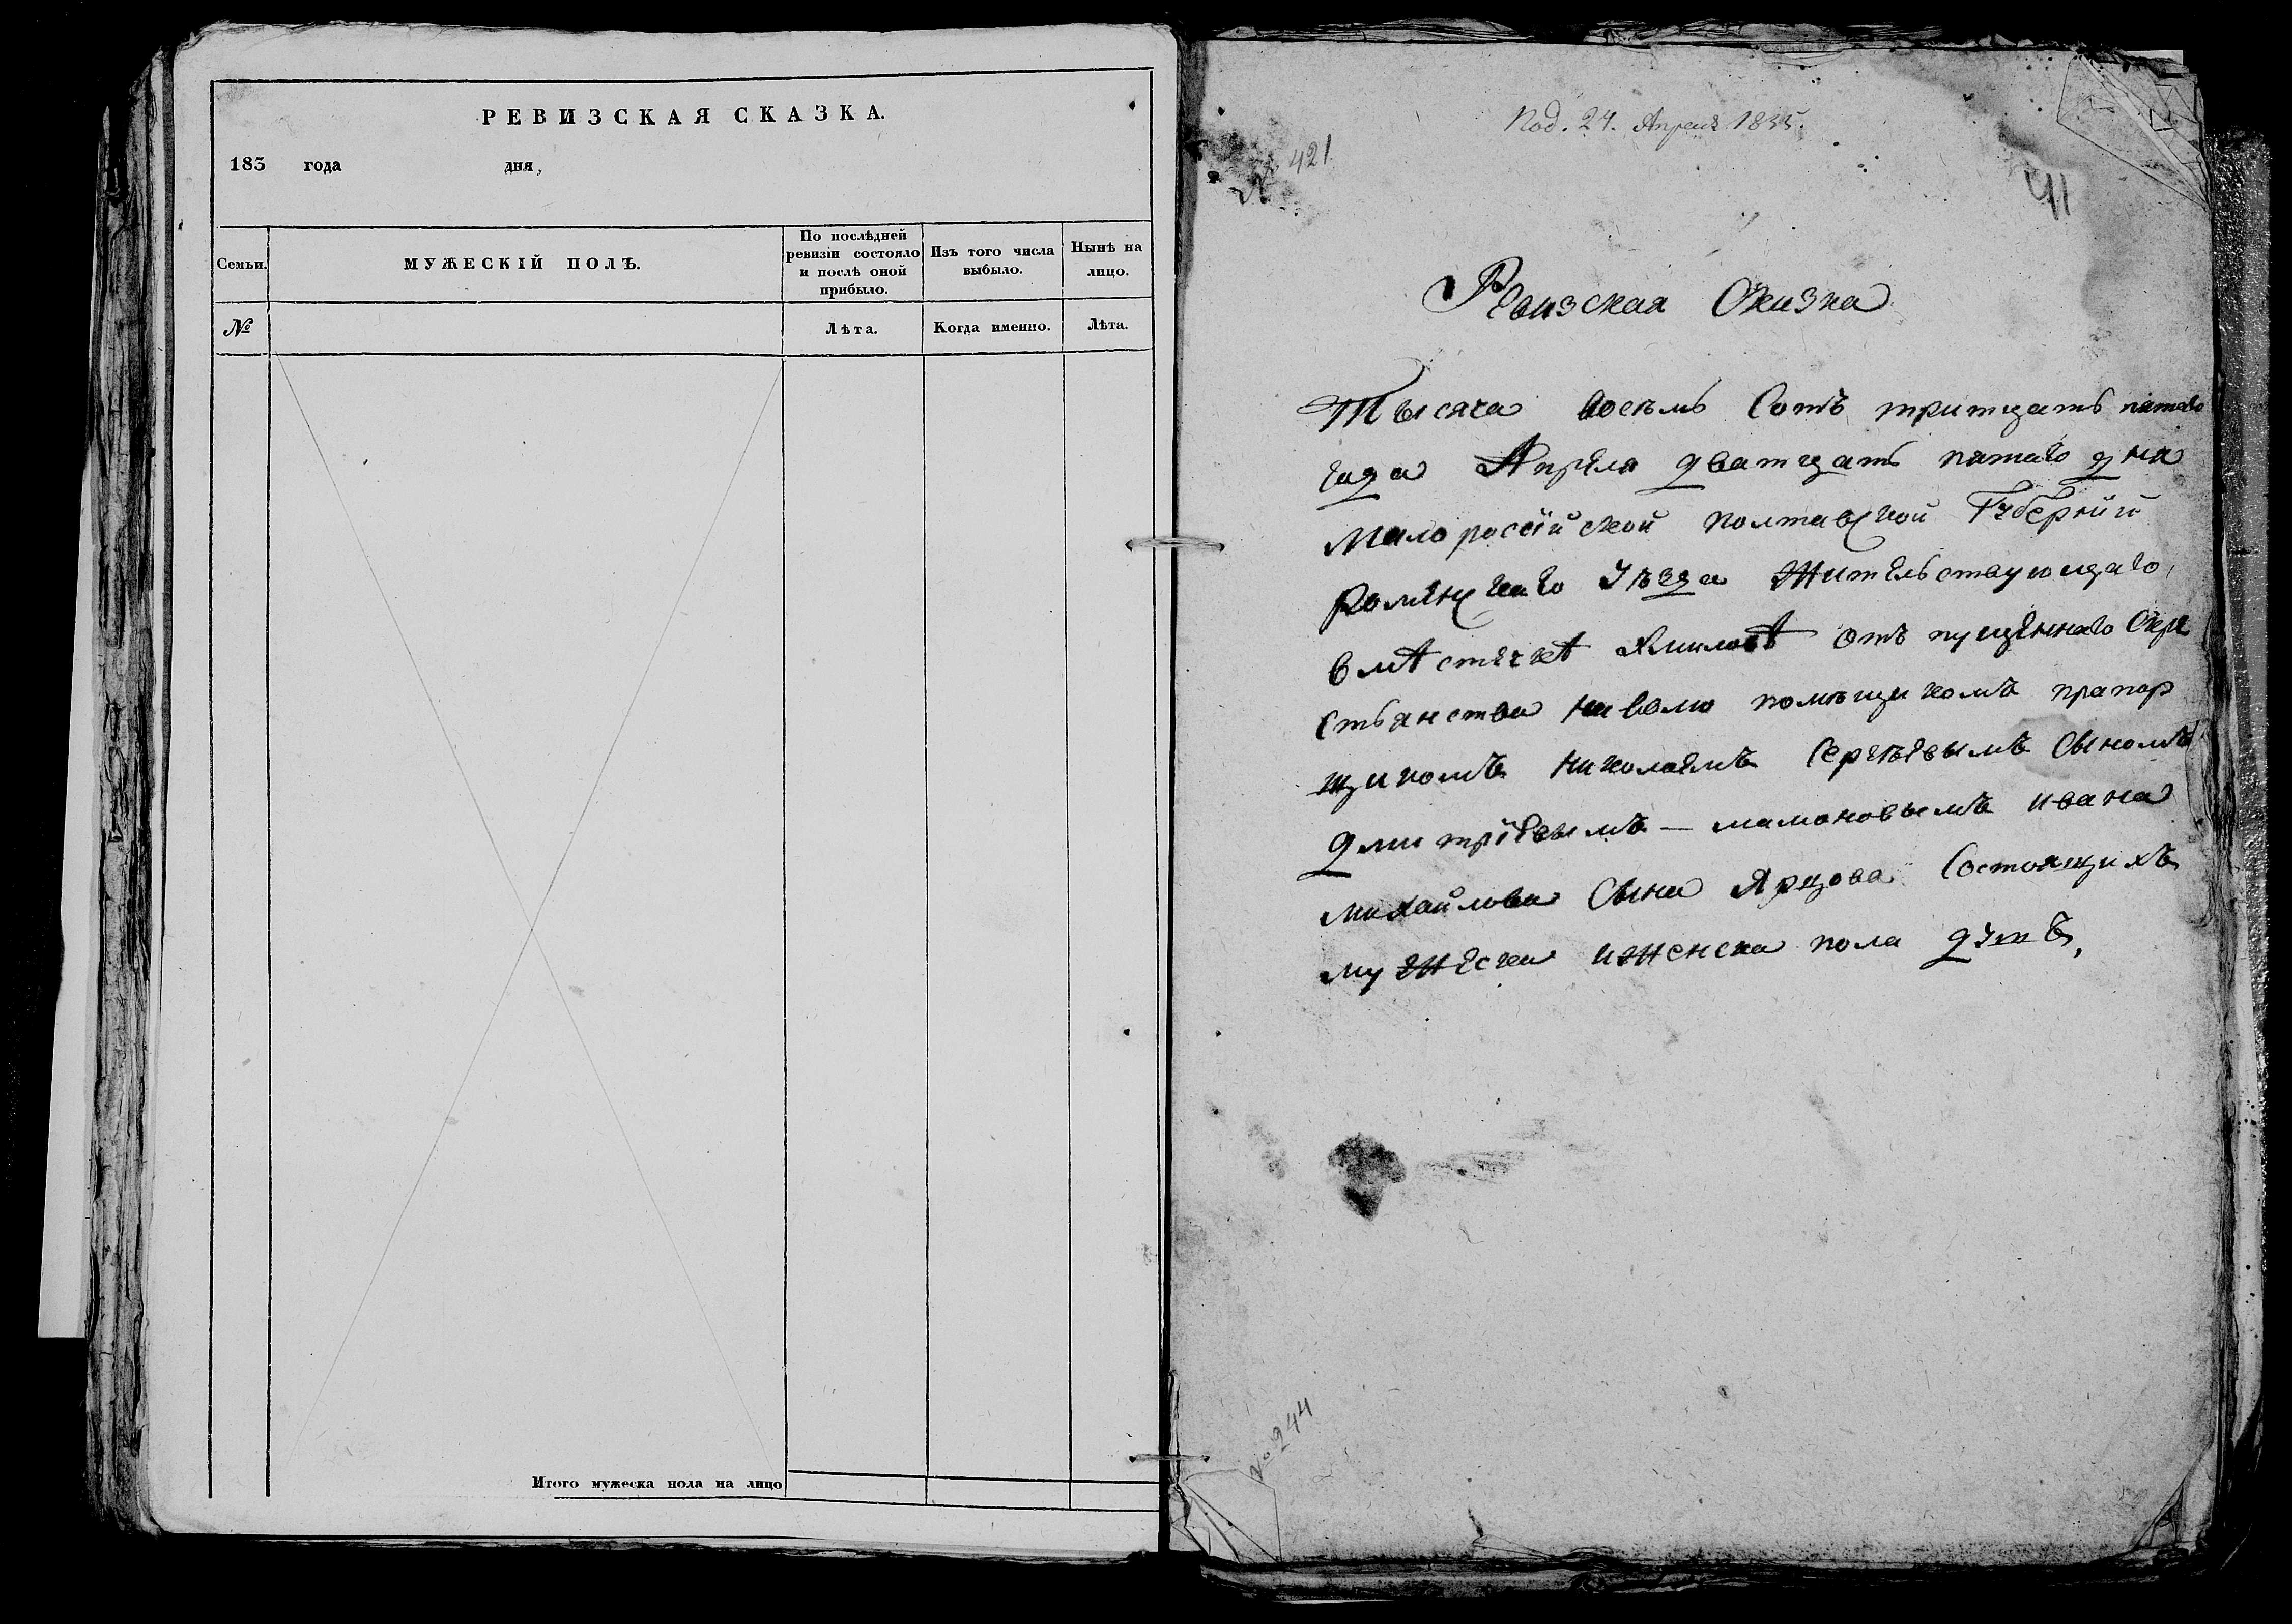 РЕВИЗСКАЯ СКАЗКА.
183 года дня,
Семьи.
МУЖЕСКІЙ ПОЛЪ.
По послѣдней
ревизіи состояло
и послѣ оной
прибыло.
Изъ того числа
выбыло.
Нынѣ на
лицо.
№
Лѣта.
Когда именно.
Лѣта.
Итого мужеска пола на лицо
Под. 24. Апреля 1835.
№ 421
41
Ревизская Сказка
Тысяча восемь Сотъ тритцать патаго
года Апреля дватцать патаго дна
Малоросейской полтавской Губерніи
роменскаго Уѣзда Жительствующаго,
в мѣстечке Хмиловѣ отъ пущеннаго Скре
стьянства на волю помѣщикомъ прапор
щикомъ николаемъ Сергѣевымъ Сыномъ
дмитріевымъ — мамоновымъ ивана
михайлова Сына Ярцова Состоящихъ
мужеска иженска пола дѹшъ,
№ 244